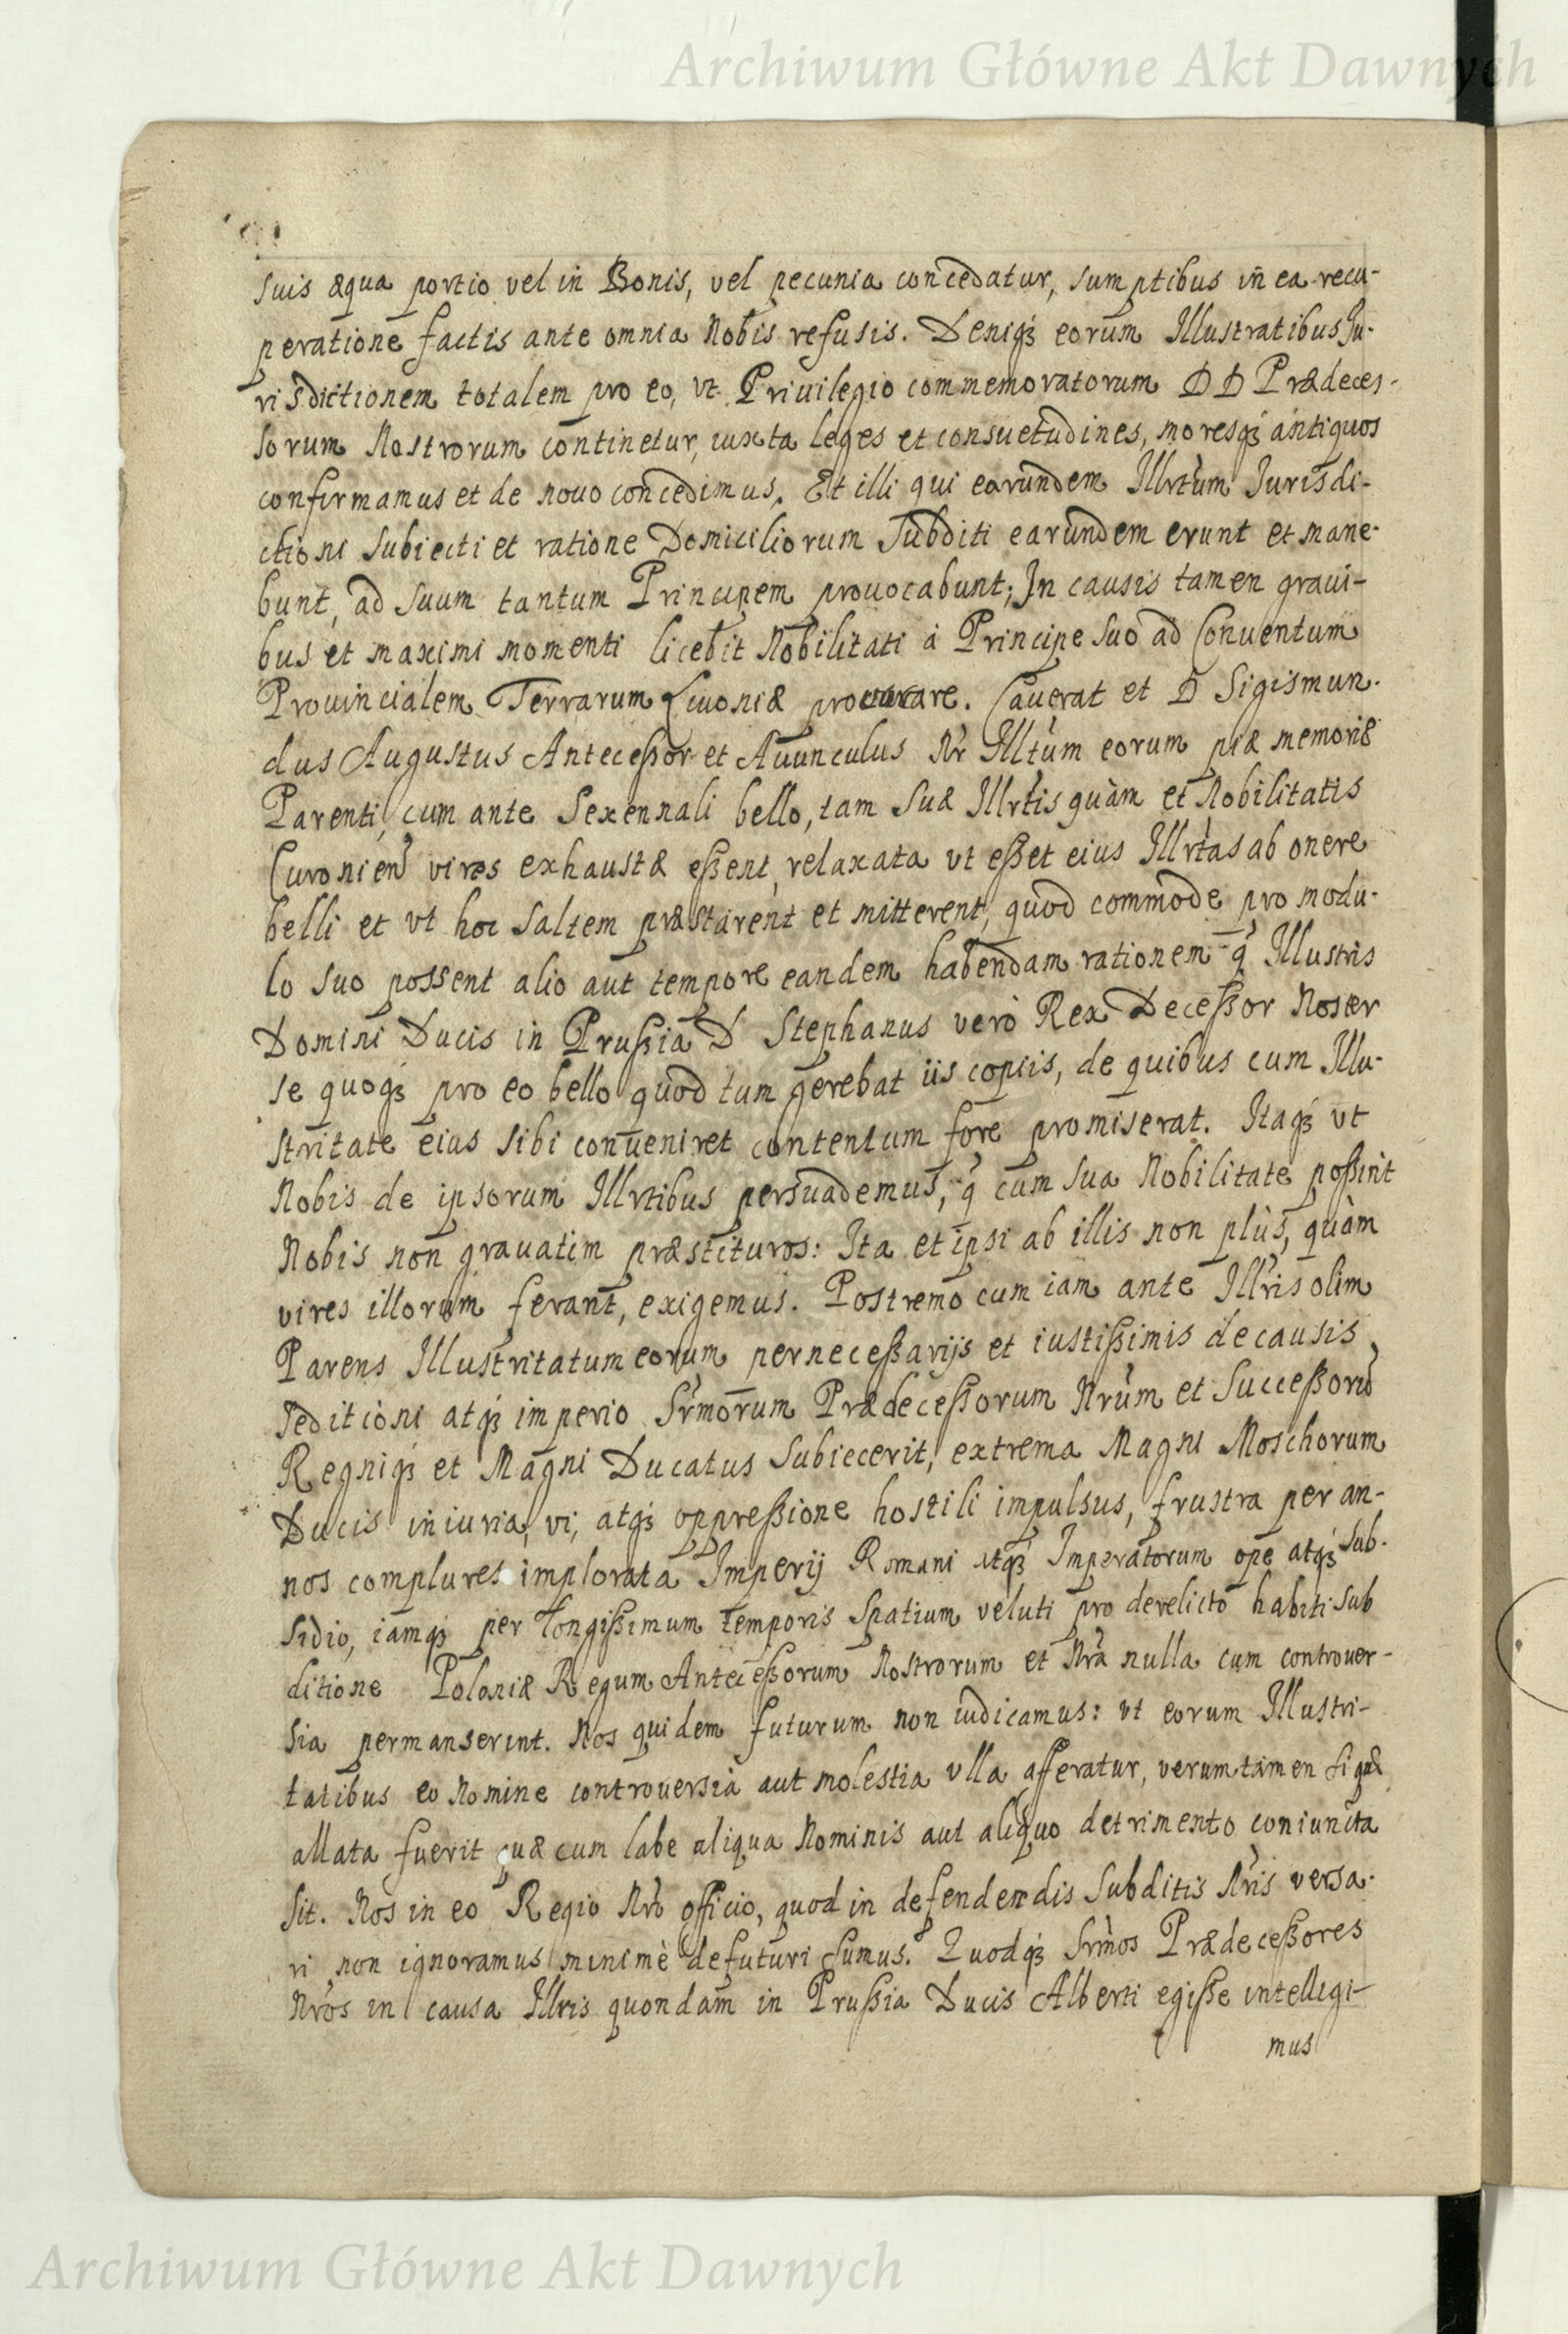 Archiwum Główne Akt Dawnych
suis æqua portio vel in Bonis, vel pecunia concedatur, sumptibus in ea recu-
peratione factis ante omnia Nobis refusis. Deniqꝫ eorum Illustratibus Ju-
risdictionem totalem pro eo, vt Priuilegio commemoratorum DD Prædeces-
sorum Nostrorum continetur, iuxta leges et consuetudines, moresqꝫ antiquos
confirmamus et de nouo concedimus. Et illi qui earundem Illrtùm Jurisdi-
ctioni subiecti et ratione Domiciliorum Subditi earundem erunt et mane-
bunt, ad suum tantum Principem prouocabunt; In causis tamen graui-
bus et maximi momenti licebit Nobilitati à Principe suo ad Conuentum
Prouincialem Terrarum Liuoniæ . Cauerat et D Sigismun-
dus Augustus Anteceßor et Auunculus Nr̀ Illtùm eorum piæ memoriæ
Parenti, cum ante Sexennali bello, tam suæ Illrtis quàm et Nobilitatis
Curonien̄ vires exhaustæ eßent, relaxata vt eßet eius Illrtàs ab onere
belli et vt hoc saltem præstarent et mitterent, quod commode pro modu-
lo suo possent alio aut tempore eandem habendam rationem q̀ Illustris
Domini Ducis in Prußia D Stephanus verò Rex Deceßor Noser
se quoqꝫ pro eo bello quod tum gerebat iis copiis, de quibus cum Illu-
stritate eius sibi conueniret contentum fore promiserat. Itaqꝫ vt
Nobis de ipsorum Illrtibus persuademus, q̀ cum sua Nobilitate poßint
Nobis non grauatim præstituros: Ita et ipsi ab illis non plùs, quàm
vires illorum ferant, exigemus. Postremo cum iam ante Illr̀is olim
Parens Illustritatum eorum perneceßarijs et iustißimis de causis
seditioni atqꝫ imperio Sr̀morum Prædeceßorum Nrùm et Succeßorū
Regniqꝫ et Magni Ducatus subiecerit, extrema Magni Moschorum
Ducis iniuria, vi, atqꝫ oppreßione hostili impulsus, frustra per an-
nos complures implorata Imperij Romani atqꝫ Imperatorum ope atqꝫ sub-
sidio, iamqꝫ per longißimum temporis spatium veluti pro derelicto habiti sub
ditione Poloniæ Regum Anteceßorum Nostrorum et Nrà nulla cum controuer-
sia permanserint. Nos quidem futurum non iudicamus: vt eorum Illustri-
tatibus eo Nomine controuersia aut molestia vlla afferatur, verumtamen si quæ
allata fuerit quæ cum labe aliqua Nominis aut aliquo detrimento coniuncta
sit. Nos in eo Regio Nrò officio, quod in defendendis Subditis Nr̀is versa-
ri non ignoramus minimè defuturi sumus. Quodqꝫ Srm̀os Prædeceßores
Nròs in causa Illris quondam in Prußia Ducis Alberti egiße intelligi-
mus
Archiwum Główne Akt Dawnych